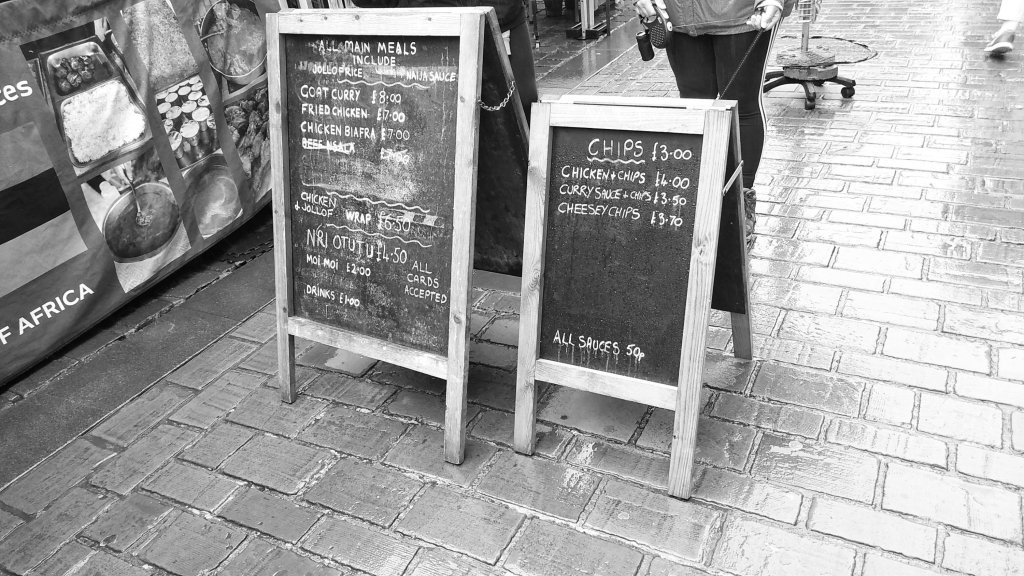 ces
F AFRICA
ALL MAIN MEALS
INCLUDE
JOLLOF RICE NAIJA SAUCE
GOAT CURRY £8:00
FRIED CHICKEN £7:00
CHICKEN BIAFRA £7:00
CHICKEN
+ JOLLOF WRAP £6.50
NRI OTUTU £4.50
MOI MOI £2:00
ALL
CARDS
ACCEPTED
DRINKS £1:00
CHIPS £3.00
CHICKEN + CHIPS £4.00
CURRY SAUCE + CHIPS £3.50
CHEESEY CHIPS £3.70
ALL SAUCES 50p